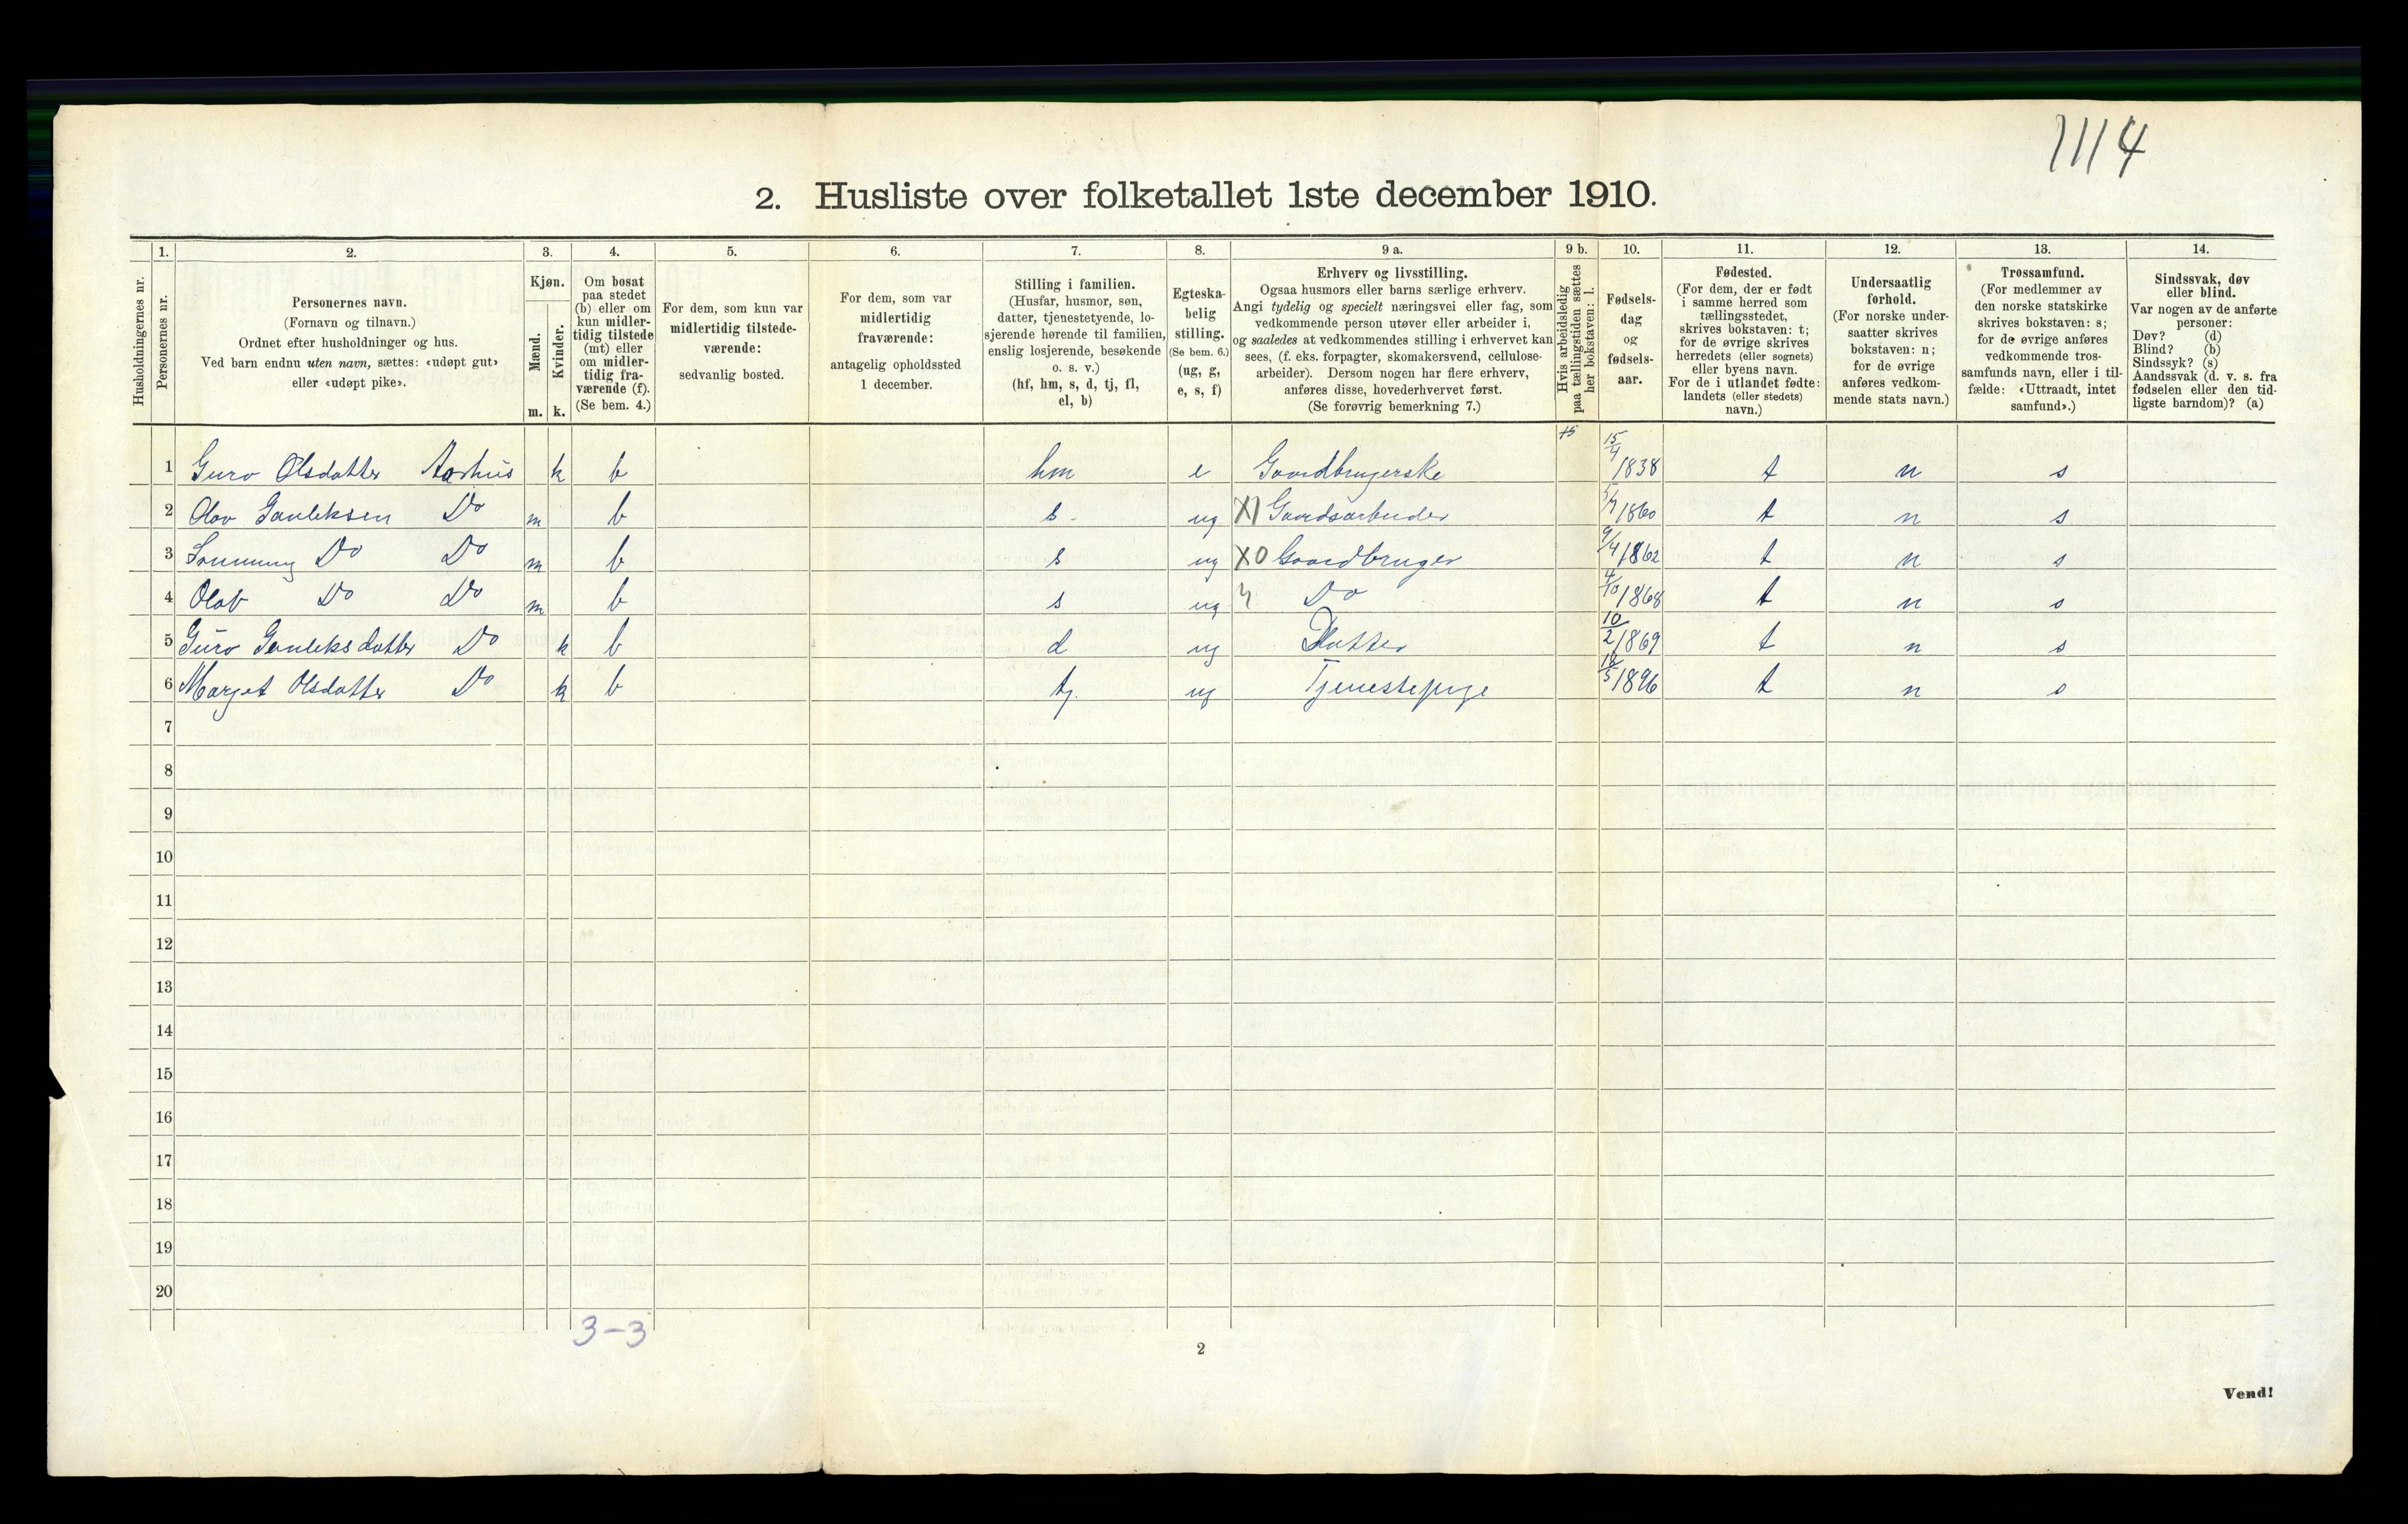 1114
2. Husliste over folketallet 1ste december 1910.
Husholdningernes nr.
1. Personernes nr.
2. Personernes navn.
(Fornavn og tilnavn.)
Ordnet efter husholdninger og hus.
Ved barn endnu uten navn, sættes: «udøpt gut»
eller «udøpt pike».
3. Kjøn.
Mænd. m.
Kvinder. k.
4. Om bosat
paa stedet
(b) eller om
kun midler-
tidig tilstede
(mt) eller
om midler-
tidig fra-
værende (f).
(Se bem. 4.)
5. For dem, som kun var
midlertidig tilstede-
værende:
sedvanlig bosted.
6. For dem, som var
midlertidig
fraværende:
antagelig opholdssted
1 december.
7. Stilling i familien.
(Husfar, husmor, søn,
datter, tjenestetyende, lo-
sjerende hørende til familien,
enslig losjerende, besøkende
o. s. v.)
(hf, hm, s, d, tj, fl,
el, b)
8. Egteska-
belig
stilling.
(Se bem. 6.)
(ug, g,
e, s, f)
9 a. Erhverv og livsstilling.
Ogsaa husmors eller barns særlige erhverv.
Angi tydelig og specielt næringsvei eller fag, som
vedkommende person utøver eller arbeider i,
og saaledes at vedkommendes stilling i erhvervet kan
sees, (f. eks. forpagter, skomakersvend, cellulose-
arbeider). Dersom nogen har flere erhverv,
anføres disse, hovederhvervet først.
(Se forøvrig bemerkning 7.)
9 b. Hvis arbeidsledig
paa tællingstiden sættes
her bokstaven: l.
10. Fødsels-
dag
og
fødsels-
aar.
11. Fødested.
(For dem, der er født
i samme herred som
tællingsstedet,
skrives bokstaven: t;
for de øvrige skrives
herredets (eller sognets)
eller byens navn.
For de i utlandet fødte:
landets (eller stedets)
navn.)
12. Undersaatlig
forhold.
(For norske under-
saatter skrives
bokstaven: n;
for de øvrige
anføres vedkom-
mende stats navn.)
13. Trossamfund.
(For medlemmer av
den norske statskirke
skrives bokstaven: s;
for de øvrige anføres
vedkommende tros-
samfunds navn, eller i til-
fælde: «Uttraadt, intet
samfund».)
14. Sindssvak, døv
eller blind.
Var nogen av de anførte
personer:
Døv? (d)
Blind? (b)
Sindssyk? (s)
Aandssvak (d. v. s. fra
fødselen eller den tid-
ligste barndom)? (a)
1 Guro Olsdatter Aarhus k b hm e Gaardbrugerske 15/4 1838 t n s
2 Olav Gauleksen Do m b s ug X1 Gaardsarbeider /1860 t n s
3 Do Do m b s ug X0 Gaardbruger 9/4 1862 t n s
4 Olav Do Do m b s ug Do 4/10 1868 t n s
5 Guro Gauleksdatter Do k b d ug Datter 10/2 1869 t n s
6 Marget Olsdatter Do k b tj. ug Tjenestepige 18/5 1896 t n s
7
8
9
10
11
12
13
14
15
16
17
18
19
20
3-3
2
Vend!